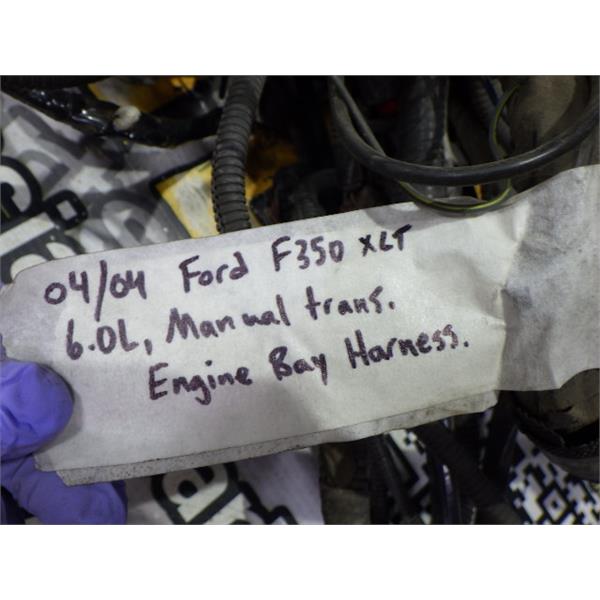 04/04 Ford F350 XLT
6.0L, Manual trans.
Engine Bay Harness.